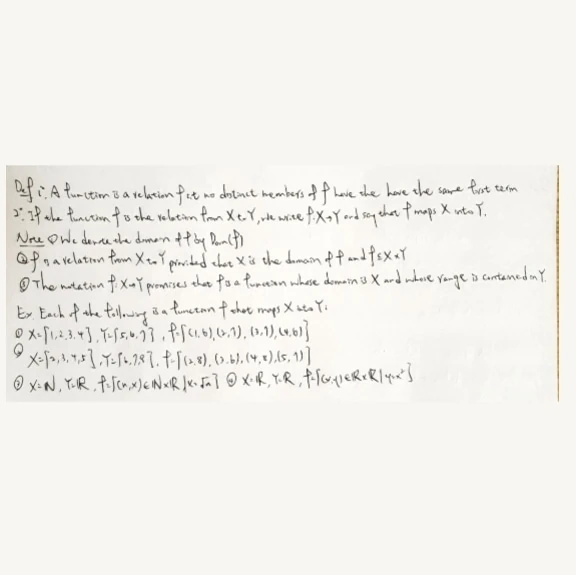 Def 1°. A function is a relation f s.t. no distinct members of f have the have the same first term
2°. If the function f is the relation from X to Y, we write f: X→Y and say that f maps X into Y.
Note ① We denote the domain of f by Dom(f)
② f is a relation from X to Y provided that X is the domain of f and f⊆X×Y
③ The notation f: X→Y promises that f is a function whose domain is X and whose range is contained in Y.
Ex Each of the following is a function f that maps X into Y:
① X={1,2,3,4}, Y={5,6,7}, f={(1,6),(2,7),(3,7),(4,6)}
② X={2,3,4,5}, Y={6,7,8}, f={(2,8),(3,6),(4,8),(5,7)}
③ X=ℕ, Y=ℝ, f={(n,x)∈ℕ×ℝ|x=√n} ④ X=ℝ, Y=ℝ, f={(x,y)∈ℝ×ℝ|y=x²}